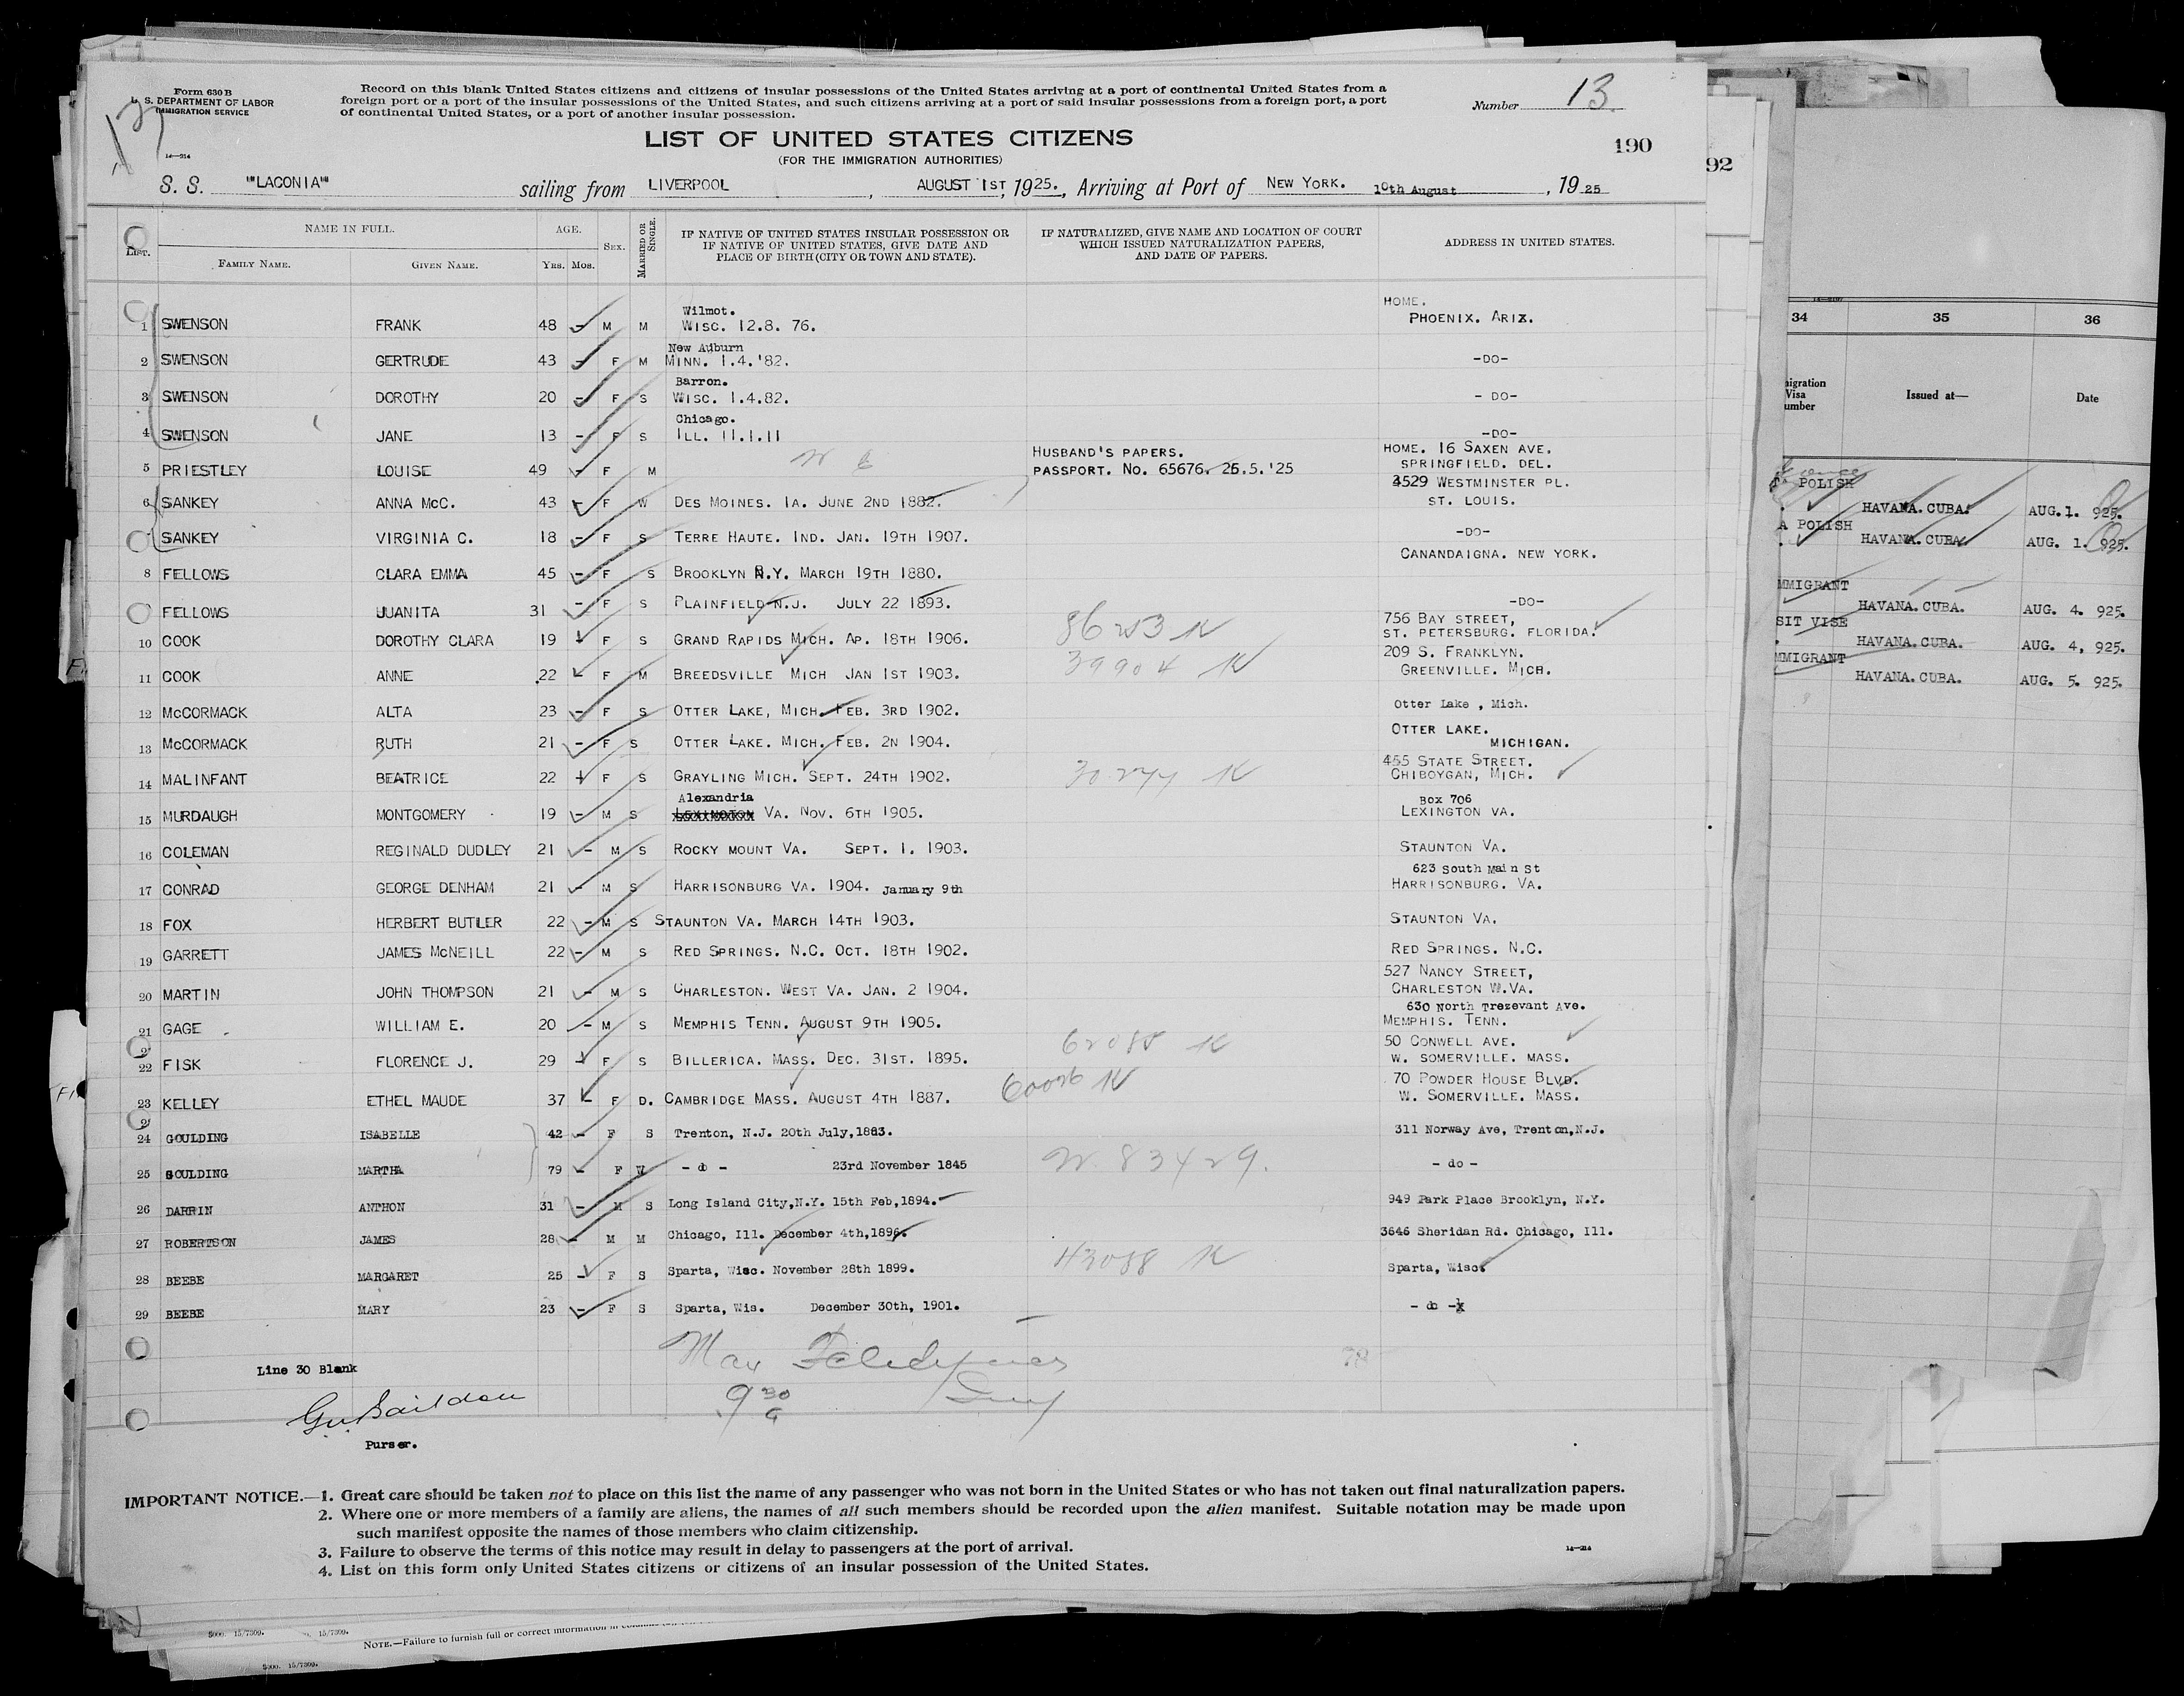 Form 630 B
U. S. DEPARTMENT OF LABOR
IMMIGRATION SERVICE
14—214
Record on this blank United States citizens and citizens of insular possessions of the United States arriving at a port of continental United States from a
foreign port or a port of the insular possessions of the United States, and such citizens arriving at a port of said insular possessions from a foreign port, a port
of continental United States, or a port of another insular possession.
Number 13
LIST OF UNITED STATES CITIZENS
(FOR THE IMMIGRATION AUTHORITIES)
190
92
S. S. "LACONIA" sailing from LIVERPOOL, AUGUST 1ST, 1925., Arriving at Port of NEW YORK. 10th August, 1925
LIST. NAME IN FULL. AGE. SEX. MARRIED OR SINGLE. IF NATIVE OF UNITED STATES INSULAR POSSESSION OR IF NATIVE OF UNITED STATES, GIVE DATE AND PLACE OF BIRTH (CITY OR TOWN AND STATE). IF NATURALIZED, GIVE NAME AND LOCATION OF COURT WHICH ISSUED NATURALIZATION PAPERS, AND DATE OF PAPERS. ADDRESS IN UNITED STATES.
FAMILY NAME. GIVEN NAME. YRS. MOS.
Wilmot. HOME.
1 SWENSON FRANK 48 - M M WISC. 12.8. 76. PHOENIX. ARIZ.
New Auburn
2 SWENSON GERTRUDE 43 - F M MINN. 1.4.'82. -DO-
Barron.
3 SWENSON DOROTHY 20 - F S WISC. 1.4.82. - DO-
Chicago.
4 SWENSON JANE 13 - F S ILL. 11.1.11 -DO-
HUSBAND'S PAPERS. HOME. 16 SAXEN AVE.
5 PRIESTLEY LOUISE 49 - F M PASSPORT. NO. 65676. 26.5.'25 SPRINGFIELD. DEL.
4529 WESTMINSTER PL.
6 SANKEY ANNA MCC. 43 - F W DES MOINES. IA. JUNE 2ND 1882. ST. LOUIS.
SANKEY VIRGINIA C. 18 - F S TERRE HAUTE. IND. JAN. 19TH 1907. -DO-
CANANDAIGNA. NEW YORK.
8 FELLOWS CLARA EMMA 45 - F S BROOKLYN N.Y. MARCH 19TH 1880.
FELLOWS JUANITA 31 - F S PLAINFIELD N.J. JULY 22 1893. -DO-
756 BAY STREET,
10 COOK DOROTHY CLARA 19 - F S GRAND RAPIDS MICH. AP. 18TH 1906. ST. PETERSBURG. FLORIDA.
209 S. FRANKLYN.
11 COOK ANNE 22 - F M BREEDSVILLE MICH JAN 1ST 1903. 39904 GREENVILLE. MICH.
12 MCCORMACK ALTA 23 - F S OTTER LAKE, MICH. FEB. 3RD 1902. Otter Lake , Mich.
OTTER LAKE.
13 MCCORMACK RUTH 21 - F S OTTER LAKE. MICH. FEB. 2N 1904. MICHIGAN.
455 STATE STREET.
14 MALINFANT BEATRICE 22 - F S GRAYLING MICH. SEPT. 24TH 1902. CHIBOYGAN, MICH.
Alexandria Box 706
15 MURDAUGH MONTGOMERY 19 - M S LEXINGTON VA. NOV. 6TH 1905. LEXINGTON VA.
16 COLEMAN REGINALD DUDLEY 21 - M S ROCKY MOUNT VA. SEPT. 1. 1903. STAUNTON VA.
623 South Main St
17 CONRAD GEORGE DENHAM 21 - M S HARRISONBURG VA. 1904. January 9th HARRISONBURG. VA.
18 FOX HERBERT BUTLER 22 - M S STAUNTON VA. MARCH 14TH 1903. STAUNTON VA.
19 GARRETT JAMES MCNEILL 22 - M S RED SPRINGS. N.C. OCT. 18TH 1902. RED SPRINGS. N.C.
527 NANCY STREET,
20 MARTIN JOHN THOMPSON 21 - M S CHARLESTON. WEST VA. JAN. 2 1904. CHARLESTON W.VA.
630 North Trezevant Ave.
21 GAGE WILLIAM E. 20 - M S MEMPHIS TENN. AUGUST 9TH 1905. MEMPHIS. TENN.
50 CONWELL AVE.
22 FISK FLORENCE J. 29 - F S BILLERICA. MASS. DEC. 31ST. 1895. W. SOMERVILLE. MASS.
70 POWDER HOUSE BLVD.
23 KELLEY ETHEL MAUDE 37 - F D. CAMBRIDGE MASS. AUGUST 4TH 1887. W. SOMERVILLE. MASS.
24 GOULDING ISABELLE 42 - F S Trenton, N.J. 20th July,1883. 311 Norway Ave, Trenton,N.J.
25 GOULDING MARTHA 79 - F W - do - 23rd November 1845 83429. - do -
26 DARRIN ANTHON 31 - M S Long Island City,N.Y. 15th Feb,1894. 949 Park Place Brooklyn, N.Y.
27 ROBERTSON JAMES 28 - M M Chicago, Ill. December 4th,1896. 3646 Sheridan Rd. Chicago, Ill.
28 BEEBE MARGARET 25 - F S Sparta, Wisc. November 28th 1899. 43088 Sparta, Wisc.
29 BEEBE MARY 23 - F S Sparta, Wis. December 30th, 1901. - do -
78
Line 30 Blank
9 30
Purser.
IMPORTANT NOTICE.—1. Great care should be taken not to place on this list the name of any passenger who was not born in the United States or who has not taken out final naturalization papers.
2. Where one or more members of a family are aliens, the names of all such members should be recorded upon the alien manifest. Suitable notation may be made upon
such manifest opposite the names of those members who claim citizenship.
3. Failure to observe the terms of this notice may result in delay to passengers at the port of arrival.
4. List on this form only United States citizens or citizens of an insular possession of the United States.
14—214
NOTE.—Failure to furnish full or correct information in
34 35 36
Visa Issued at— Date
POLISH
HAVANA.CUBA. AUG.1. 925.
A POLISH
HAVANA.CUBA. AUG. 1. 925.
MMIGRANT
HAVANA.CUBA. AUG. 4. 925.
SIT VISE
HAVANA.CUBA. AUG. 4, 925.
MMIGRANT
HAVANA.CUBA. AUG. 5. 925.